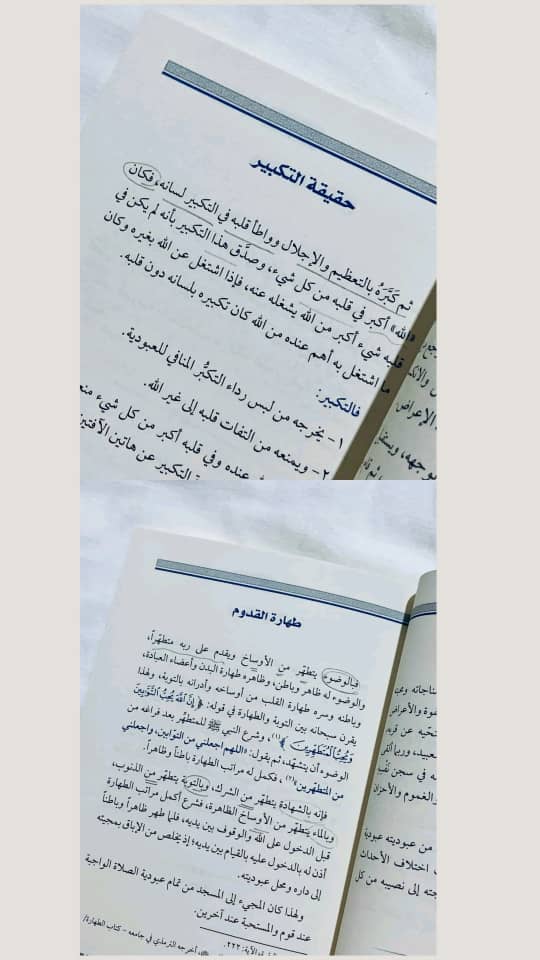 حقيقة التكبير
ثم كَبَّرَهُ بالتعظيم والإجلال وواطأ قلبه في التكبير لسانه، فكان
«الله» أكبر في قلبه من كل شيء، وصدَّق هذا التكبير بأنه لم يكن في
قلبه شيء أكبر من الله يشغله عنه، فإذا اشتغل عن الله بغيره وكان
ما اشتغل به أهم عنده من الله كان تكبيره بلسانه دون قلبه.
فالتكبير:
١- يخرجه من لبس رداء التكبُّر المنافي للعبودية.
٢- ويمنعه من التفات قلبه إلى غير الله.
عنده وفي قلبه أكبر من كل شيء
التكبير عن هاتين الآفتين
الإعراض
طهارة القدوم
فبالوضوء يتطهّر من الأوساخ ويقدم على ربه متطهّراً،
والوضوء له ظاهر وباطن، وظاهره طهارة البدن وأعضاء العبادة،
وباطنه وسره طهارة القلب من أوساخه وأدرانه بالتوبة، ولهذا
يقرن سبحانه بين التوبة والطهارة في قوله: ﴿ إِنَّ ٱللَّهَ يُحِبُّ ٱلتَّوَّٰبِينَ
وَيُحِبُّ ٱلْمُتَطَهِّرِينَ ﴾(١)، وشرع النبي ﷺ للمتطهِّر بعد فراغه من
الوضوء أن يتشهّد، ثم يقول: «اللهم اجعلني من التوّابين، واجعلني
من المتطهّرين»(٢)، فكمل له مراتب الطهارة باطناً وظاهراً.
فإنه بالشهادة يتطهّر من الشرك، وبالتوبة يتطهّر من الذنوب،
وبالماء يتطهّر من الأوساخ الظاهرة، فشرع أكمل مراتب الطهارة
قبل الدخول على الله والوقوف بين يديه، فلما طهر ظاهراً وباطناً
أذن له بالدخول عليه بالقيام بين يديه؛ إذ يخلص من الإباق بمجيئه
إلى داره ومحل عبوديته.
ولهذا كان المجيء إلى المسجد من تمام عبودية الصلاة الواجبة
عند قوم والمستحبة عند آخرين.
الآية: ٢٢٢.
أخرجه الترمذي في جامعه - كتاب الطهارة/
والأعراض
في سجن
والغموم والأحزان
من عبوديته عبودية
اختلاف الأحداث
إلى نصيبه من كل